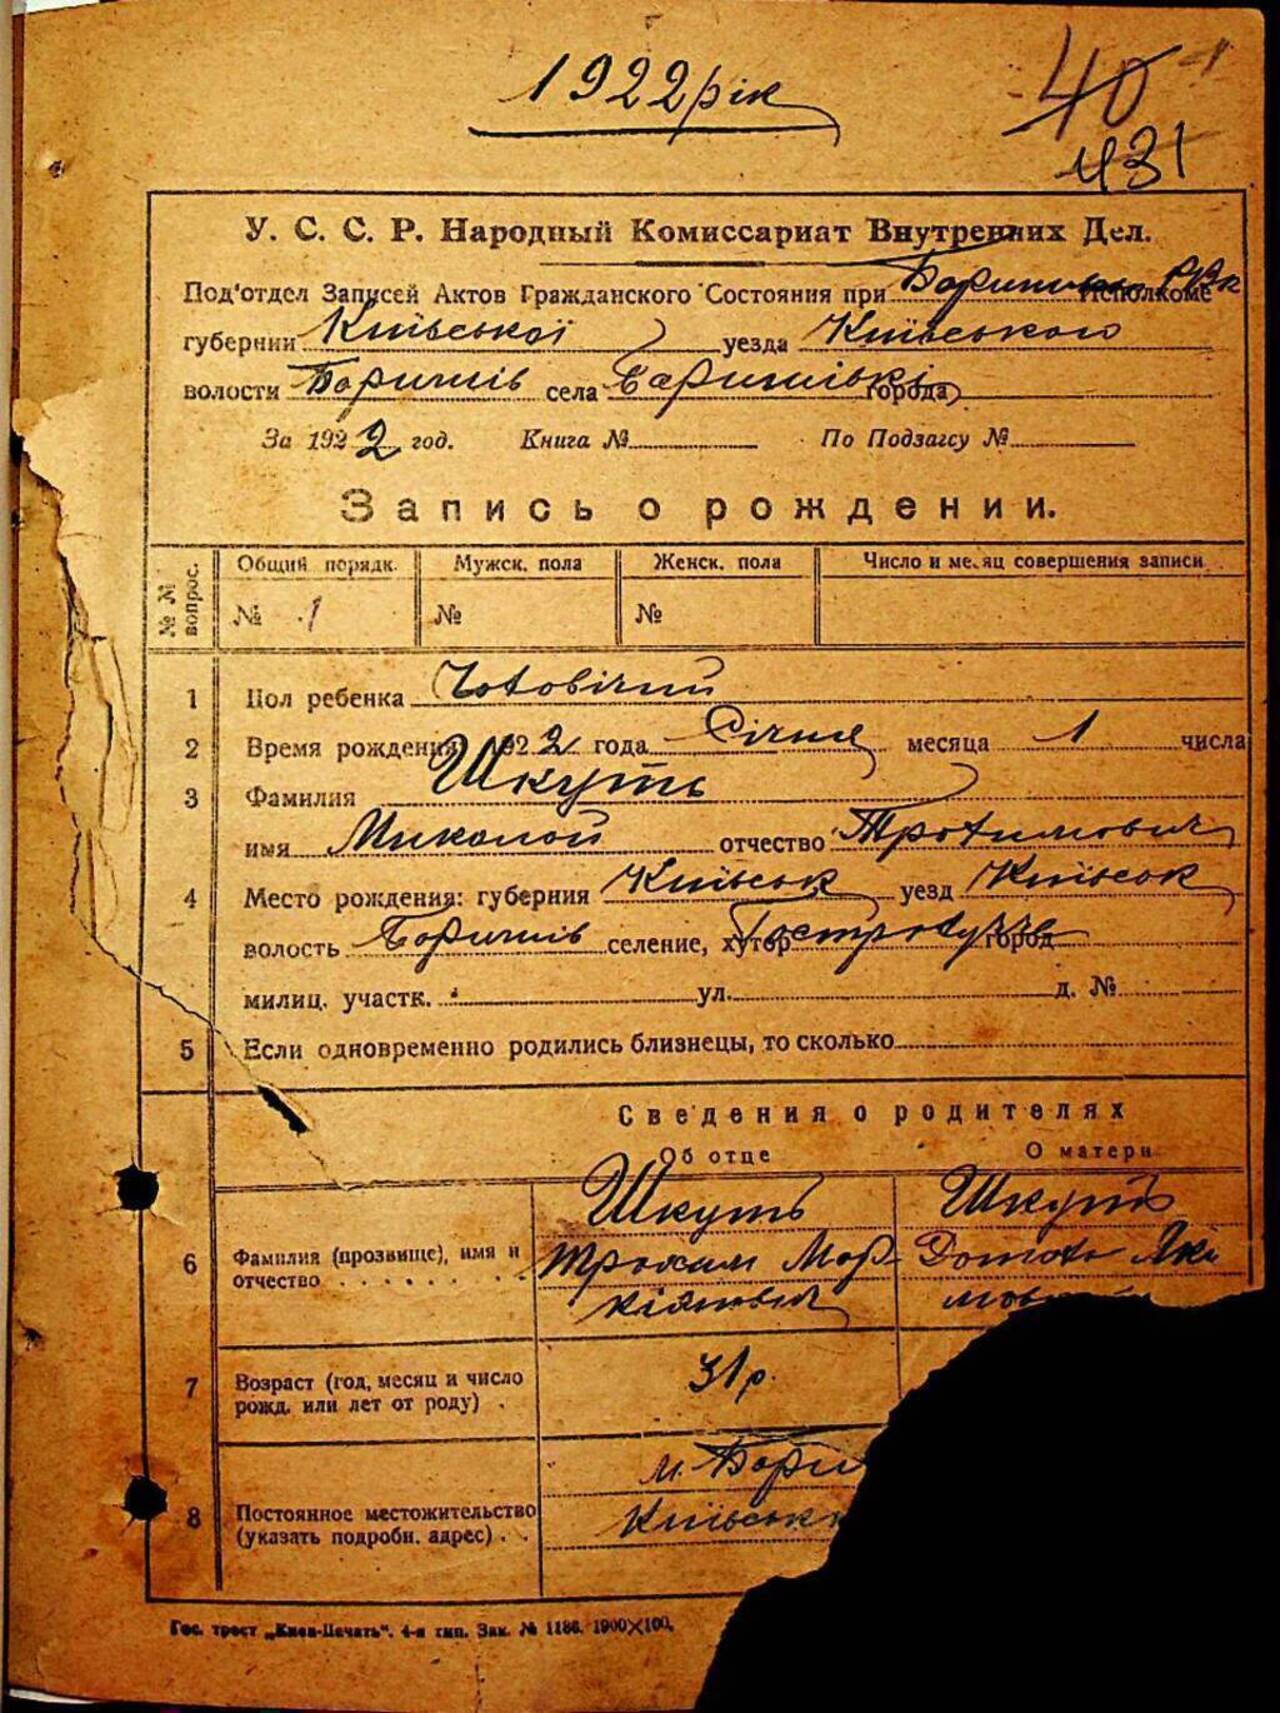 1922 рік
40
431
У. С. С. Р. Народный Комиссариат Внутренних Дел.
Под'отдел Записей Актов Гражданского Состояния при Исполкоме
губернии Київської уезда Київського
волости Баришів села Баришівкі города
За 1922 год. Книга № По Подзагсу №
Запись о рождении.
№ № вопрос. Общий порядк. Мужск. пола Женск. пола Число и месяц совершения записи
№ 1 № №
1 Пол ребенка Чоловічий
2 Время рождения 1922 года Січня месяца 1 числа
3 Фамилия Шкуть
имя Миколай отчество Трохимович
4 Место рождения: губерния Київськ уезд Київськ
волость Баришів селение, хутор город
милиц. участк. ул. д. №
5 Если одновременно родились близнецы, то сколько
Сведения о родителях
Об отце О матери
Шкуть Шкуть
6 Фамилия (прозвище), имя и отчество Трохим Мар- Яки
кіянович
7 Возраст (год, месяц и число рожд. или лет от роду) 31 р.
м. Бари
8 Постоянное местожительство (указать подробн. адрес) Київськ
Гос. трест „Киев-Печать". 4-я тип. Зак. № 1186. 1900×100.